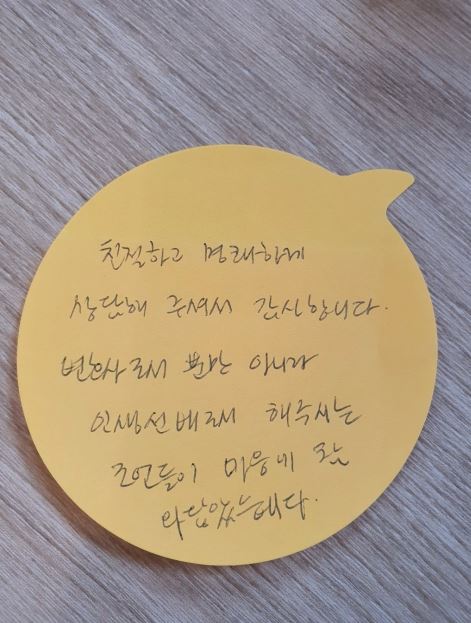 친절하고 명쾌하게
상담해 주셔서 감사합니다.
변호사로서 뿐만 아니라
인생선배로서 해주시는
조언들이 마음에 와